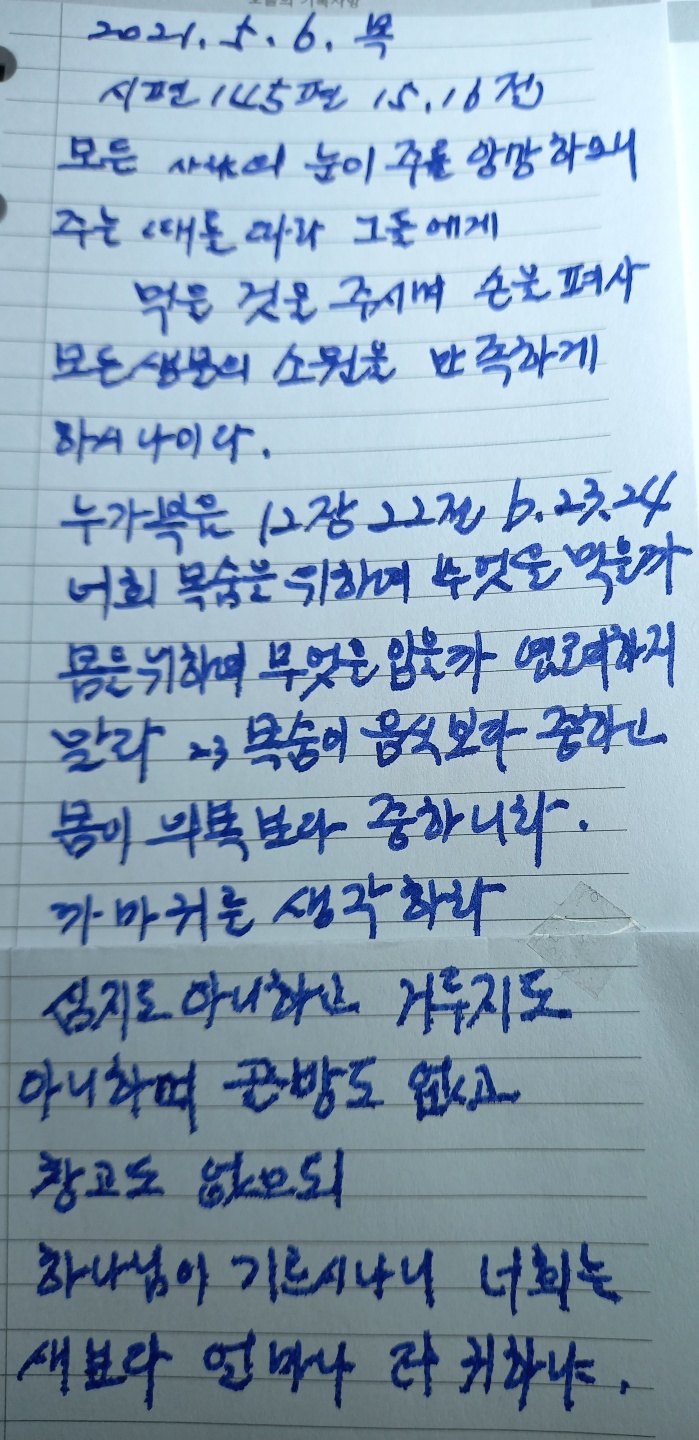 2021. 5. 6. 목
시편 145편 15, 16절
모든 사람의 눈이 주를 앙망하오니
주는 때를 따라 그들에게
먹을 것을 주시며 손을 펴사
모든 생물의 소원을 만족하게
하시나이다.
누가복음 12장 22절 b, 23, 24
너희 목숨을 위하여 무엇을 먹을까
몸을 위하여 무엇을 입을까 염려하지
말라 23 목숨이 음식보다 중하고
몸이 의복보다 중하니라.
까마귀를 생각하라
심지도 아니하고 거두지도
아니하며 골방도 없고
창고도 없으되
하나님이 기르시나니 너희는
새보다 얼마나 더 귀하냐.